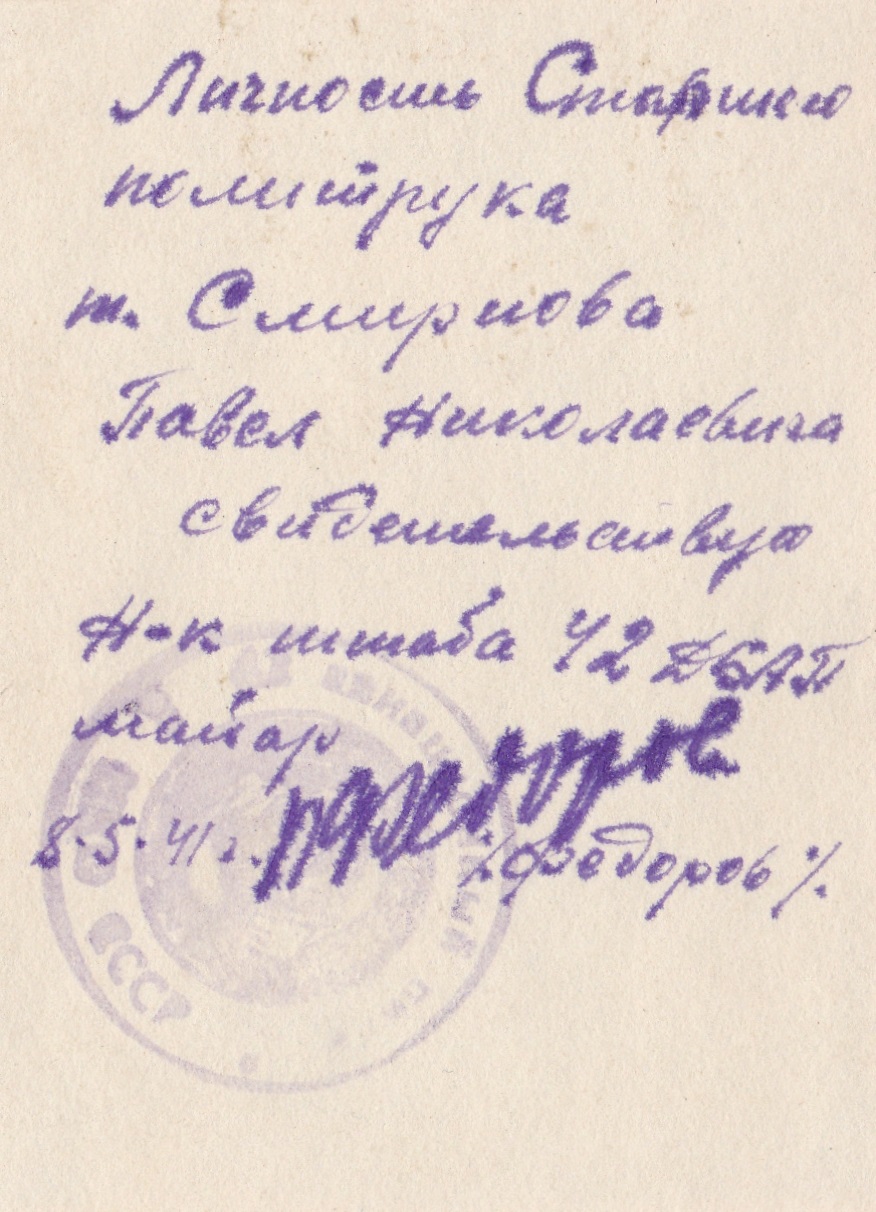 Личность Старшего
политрука
т. Смирнова
Павел Николаевича
свидетельствую
Н-к штаба 42 ДБАП
майор
8.5.41 г.
/Федоров/.
СССР